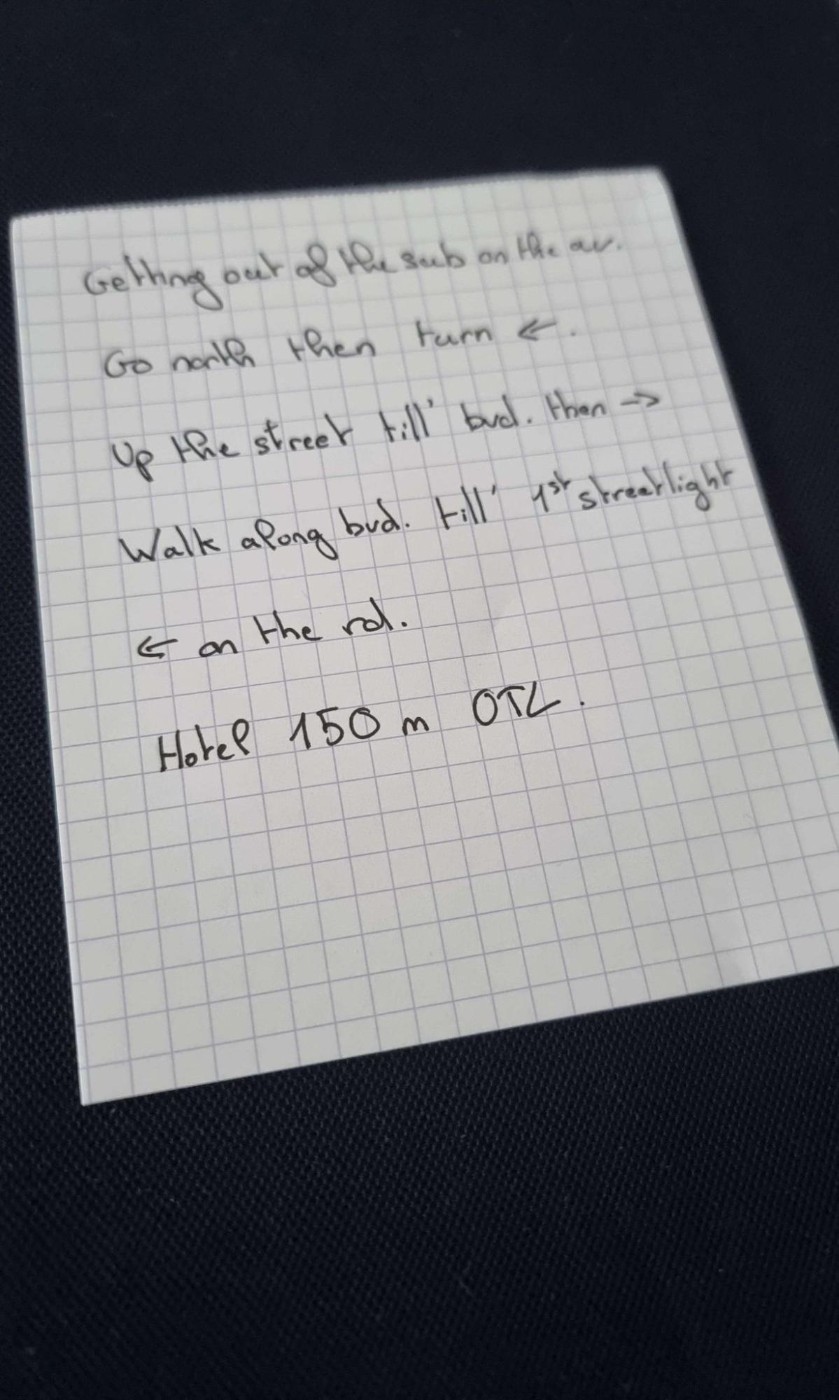 Getting out of the sub on the av.
Go north then turn ←.
Up the street till' bvd. then →
Walk along bvd. till' 1st streetlight
← on the rd.
Hotel 150 m OTL.